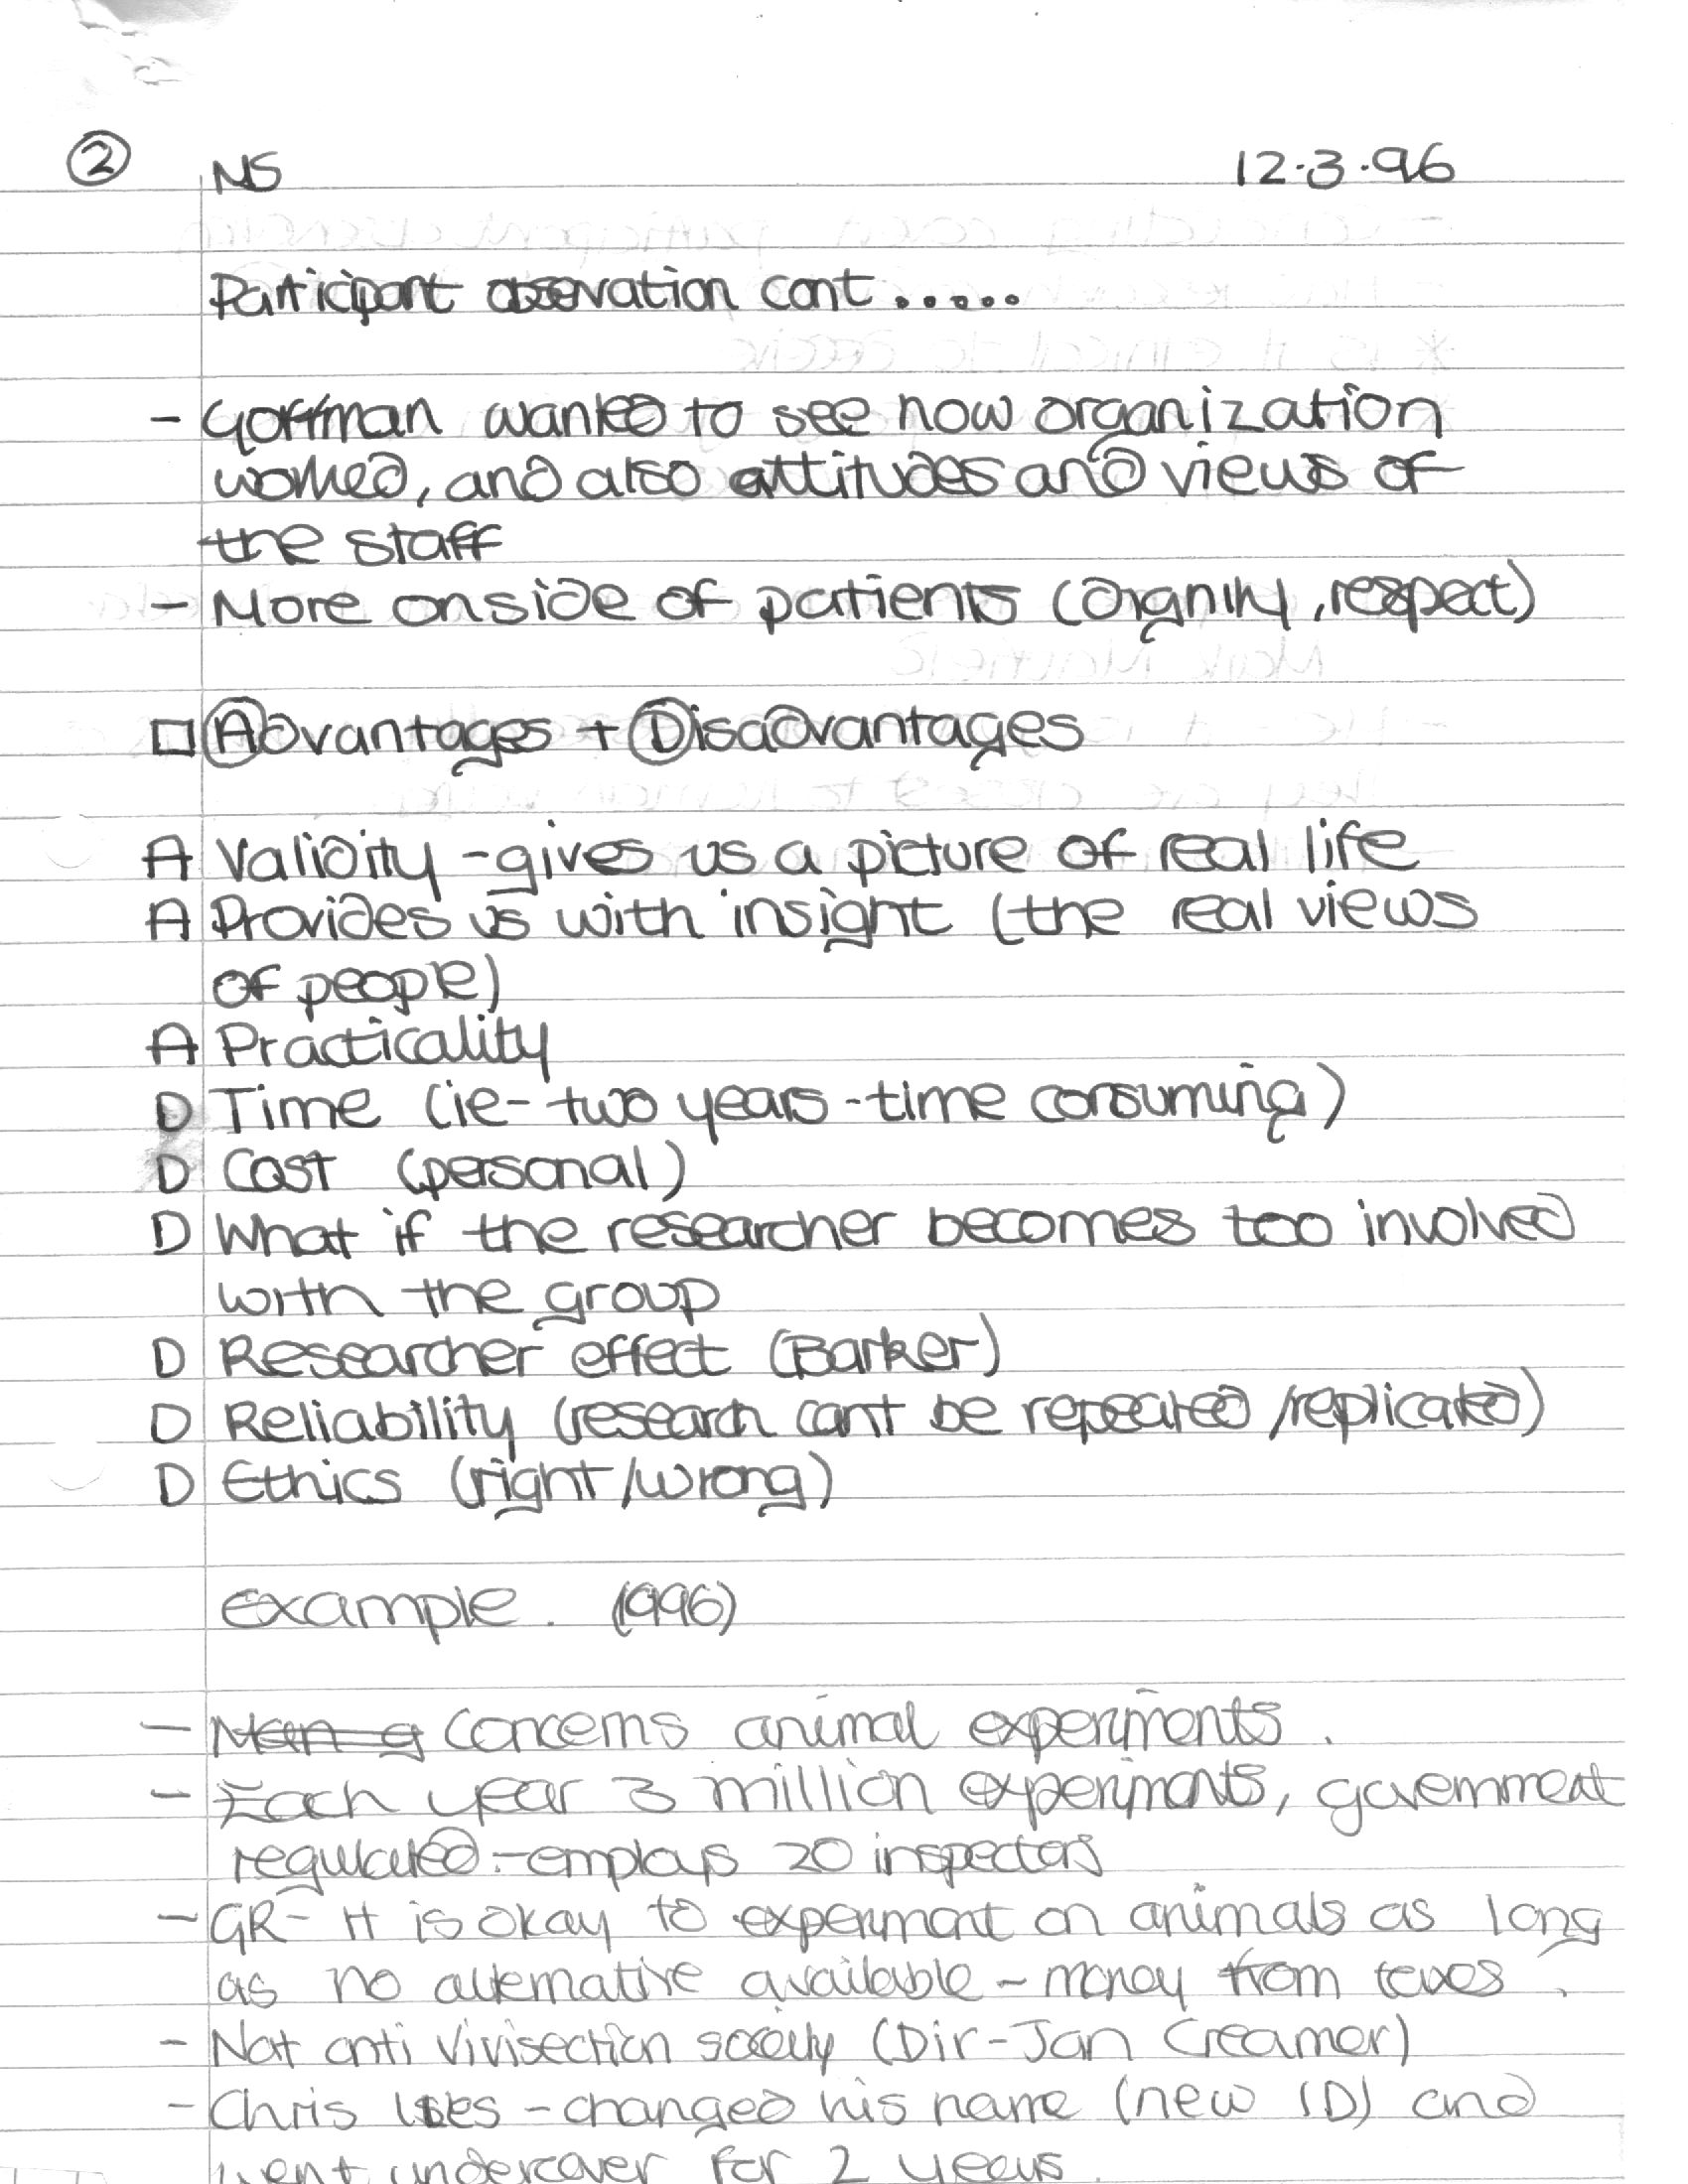 ② NS 12.3.96
Participant observation cont.....
- Goffman wanted to see how organization
worked, and also attitudes and views of
the staff
- More onside of patients (dignity, respect)
□ Advantages + Disadvantages
A Validity - gives us a picture of real life
A Provides us with insight (the real views
of people)
A Practicality
D Time (ie - two years - time consuming)
D Cost (personal)
D What if the researcher becomes too involved
with the group
D Researcher effect (Barker)
D Reliability (research cant be repeated/replicated)
D Ethics (right/wrong)
example. (1996)
- concerns animal experiments.
- Each year 3 million experiments, government
regulated - employs 20 inspectors
- GR - It is okay to experiment on animals as long
as no alternative available - money from taxes.
- Nat anti vivisection society (Dir - Jan Creamer)
- Chris - changed his name (new ID) and
went undercover for 2 years.